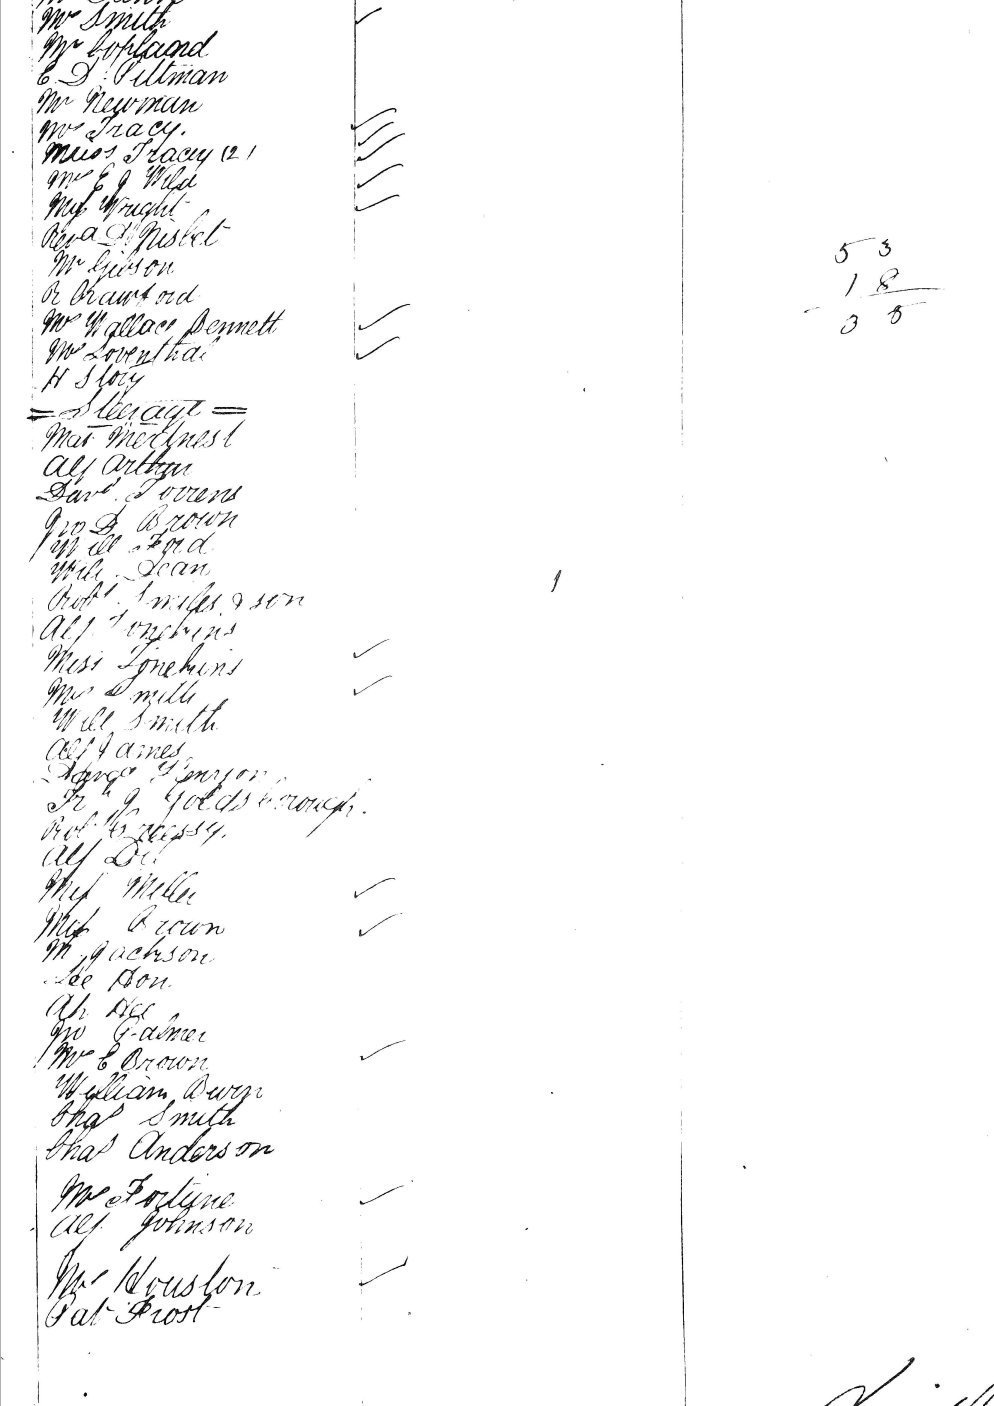 Mrs Smith
Mr Copland
E D Pittman
Mr Newman
Mrs Tracy.
Miss Tracey (2)
Mrs E J Wild
Miss Wright
Revd Dr Nisbet
Mr Gibson
R Crawford
Mrs Wallace Bennett
Mrs Loventhal
H Story
= Steerage =
Alf Arthur
Torrens
Jno D Brown
Will Ford
Will Dean
Robt Smiles & son
Alf Tonckins
Miss Tonckins
Mrs Smith
Will Smith
Alf James
J Goldsborough.
Rob Cressy.
Alf
Miss Miller
Miss Brown
M Jackson
Lee Hon
Ah Hee
Jno Palmer
Mrs E Brown
William
Chas Smith
Chas Anderson
Mrs Fortune
Alf. Johnson
Mrs Houston
Pat Frost
5 3
1 8
3 5